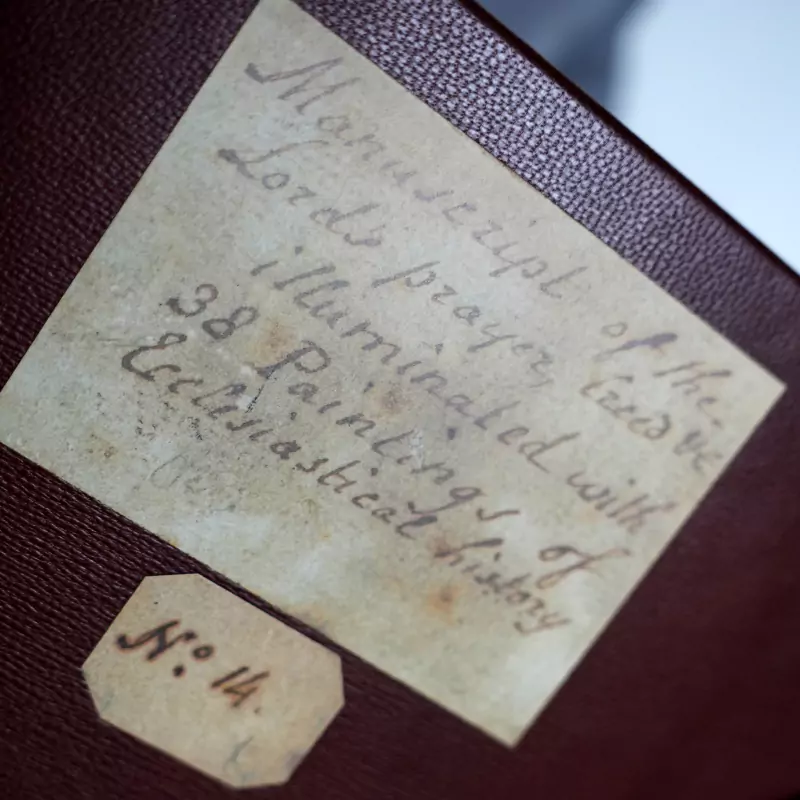 Manuscript of the
Lords prayer, Creed &c
illuminated with
38 Paintings of
Ecclesiastical history
No. 14.